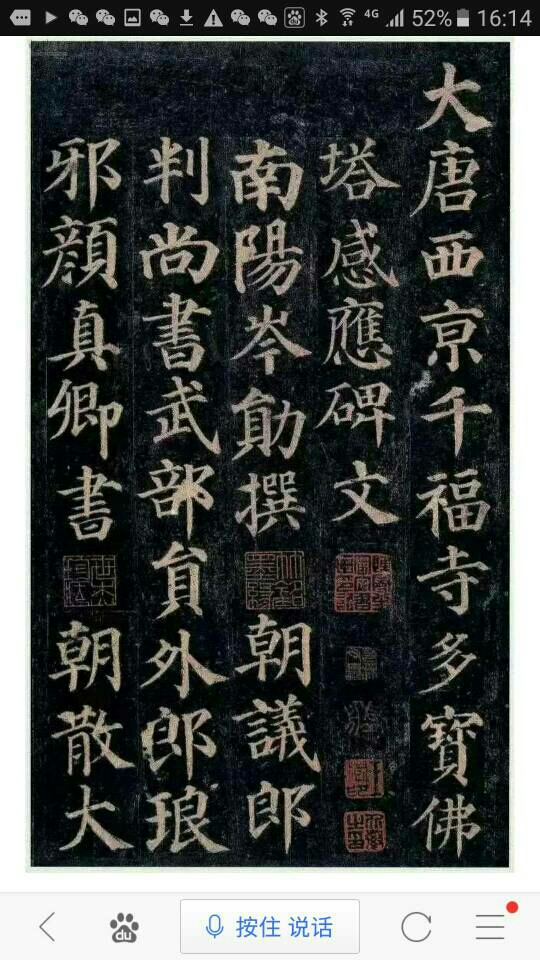 4G 52% 16:14
大唐西京千福寺多寶佛
塔感應碑文
南陽岑勛撰 朝議郎
判尚書武部員外郎琅
邪顏真卿書 朝散大
du 按住 说话